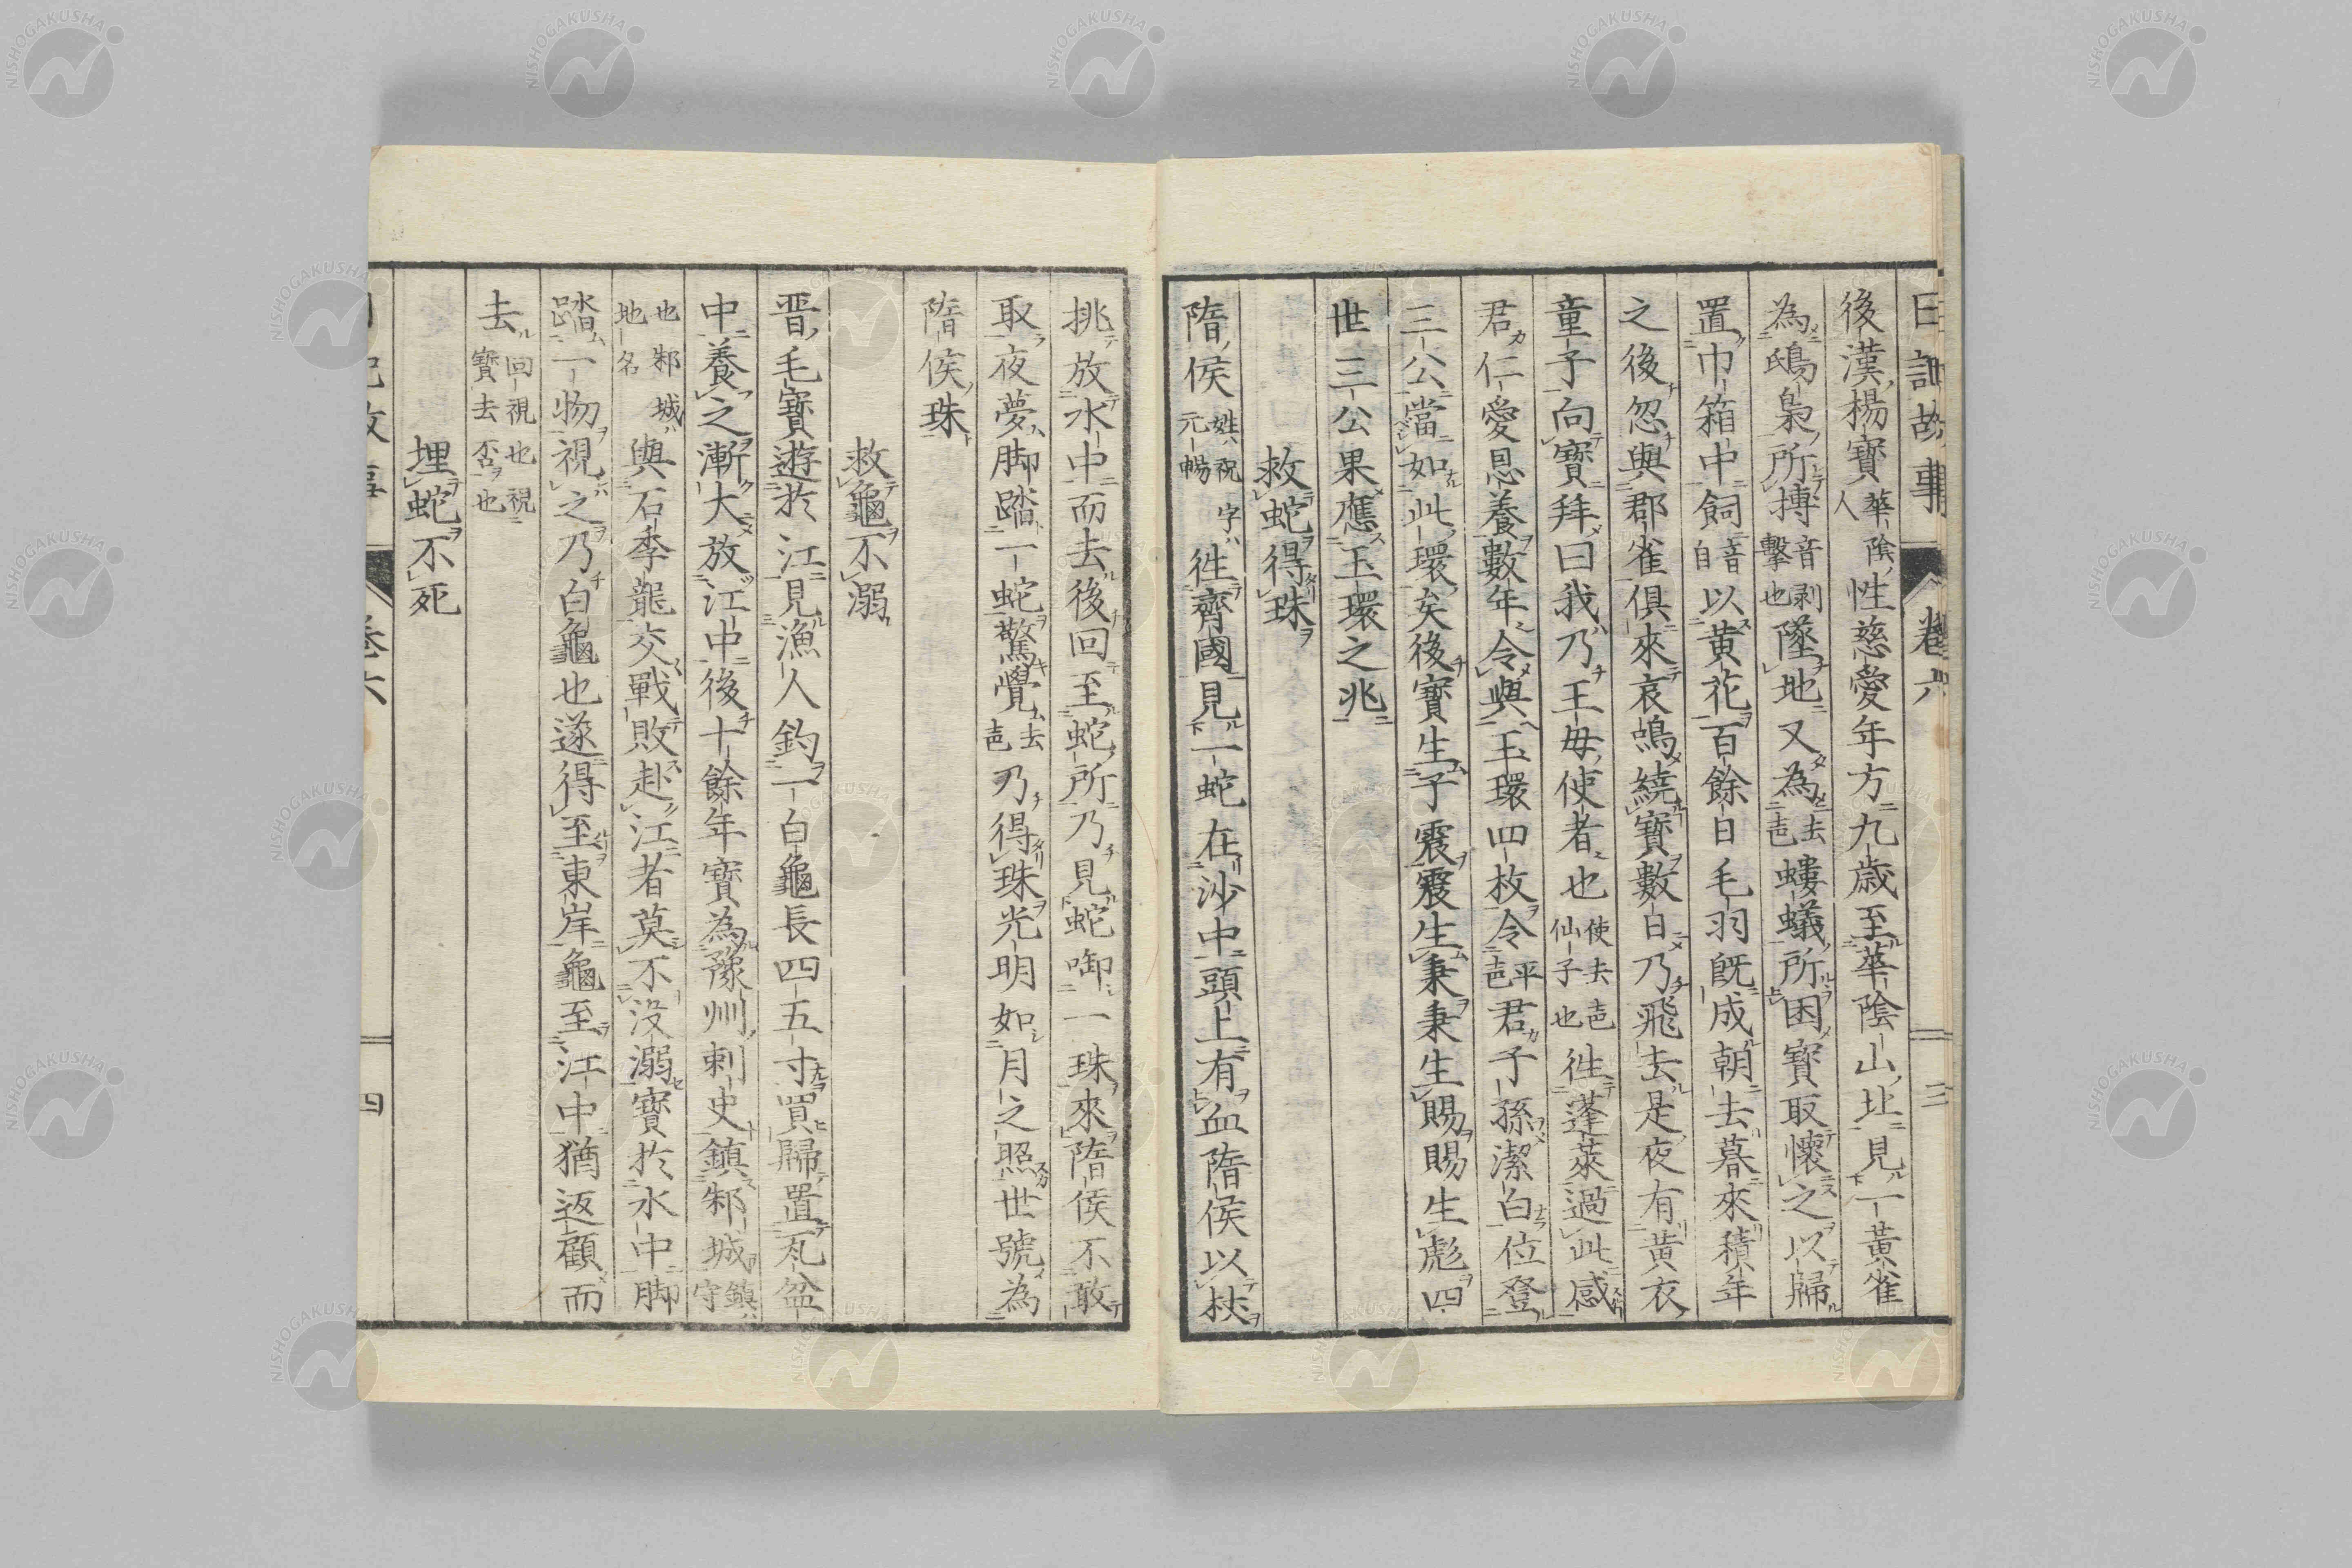 日記故事 卷六 三
後漢楊寶華陰人性慈愛年方九歳至華陰山北見一黃雀
為鴟梟所搏音剥擊也墜地又為去声螻蟻所困寶取懷之以歸
置巾箱中飼音自以黄花百餘日毛羽既成朝去暮來積年
之後忽與郡雀俱來哀鳴繞寶數日乃飛去是夜有黄衣
童子向寶拜曰我乃王母使者也使去声仙子也徃蓬萊過此感
君仁愛恩養數年今與玉環四枚令平声君子孫潔白位登
三公當如此環矣後寶生子震震生秉秉生賜賜生彪四
世三公果應玉環之兆
救蛇得珠
隋侯姓祝字元暢徃齊國見一蛇在沙中頭上有血隋侯以杖
挑放水中而去後回至蛇所乃見蛇啣一珠來隋侯不敢
取夜夢脚踏一蛇驚覺去声乃得珠光明如月之照世號為
隋侯珠
救龜不溺
晋毛寶遊於江見漁人釣一白龜長四五寸買歸置瓦盆
中養之漸大放江中後十餘年寶為豫州刺史鎮邾城鎮守
也邾城地名與石季龍交戰敗赴江者莫不没溺寶於水中脚
踏一物視之乃白龜也遂得至東岸龜至江中猶返顧而
去回視也視寶去否也
埋蛇不死
日記故事 卷六 四
NISHOGAKUSHA